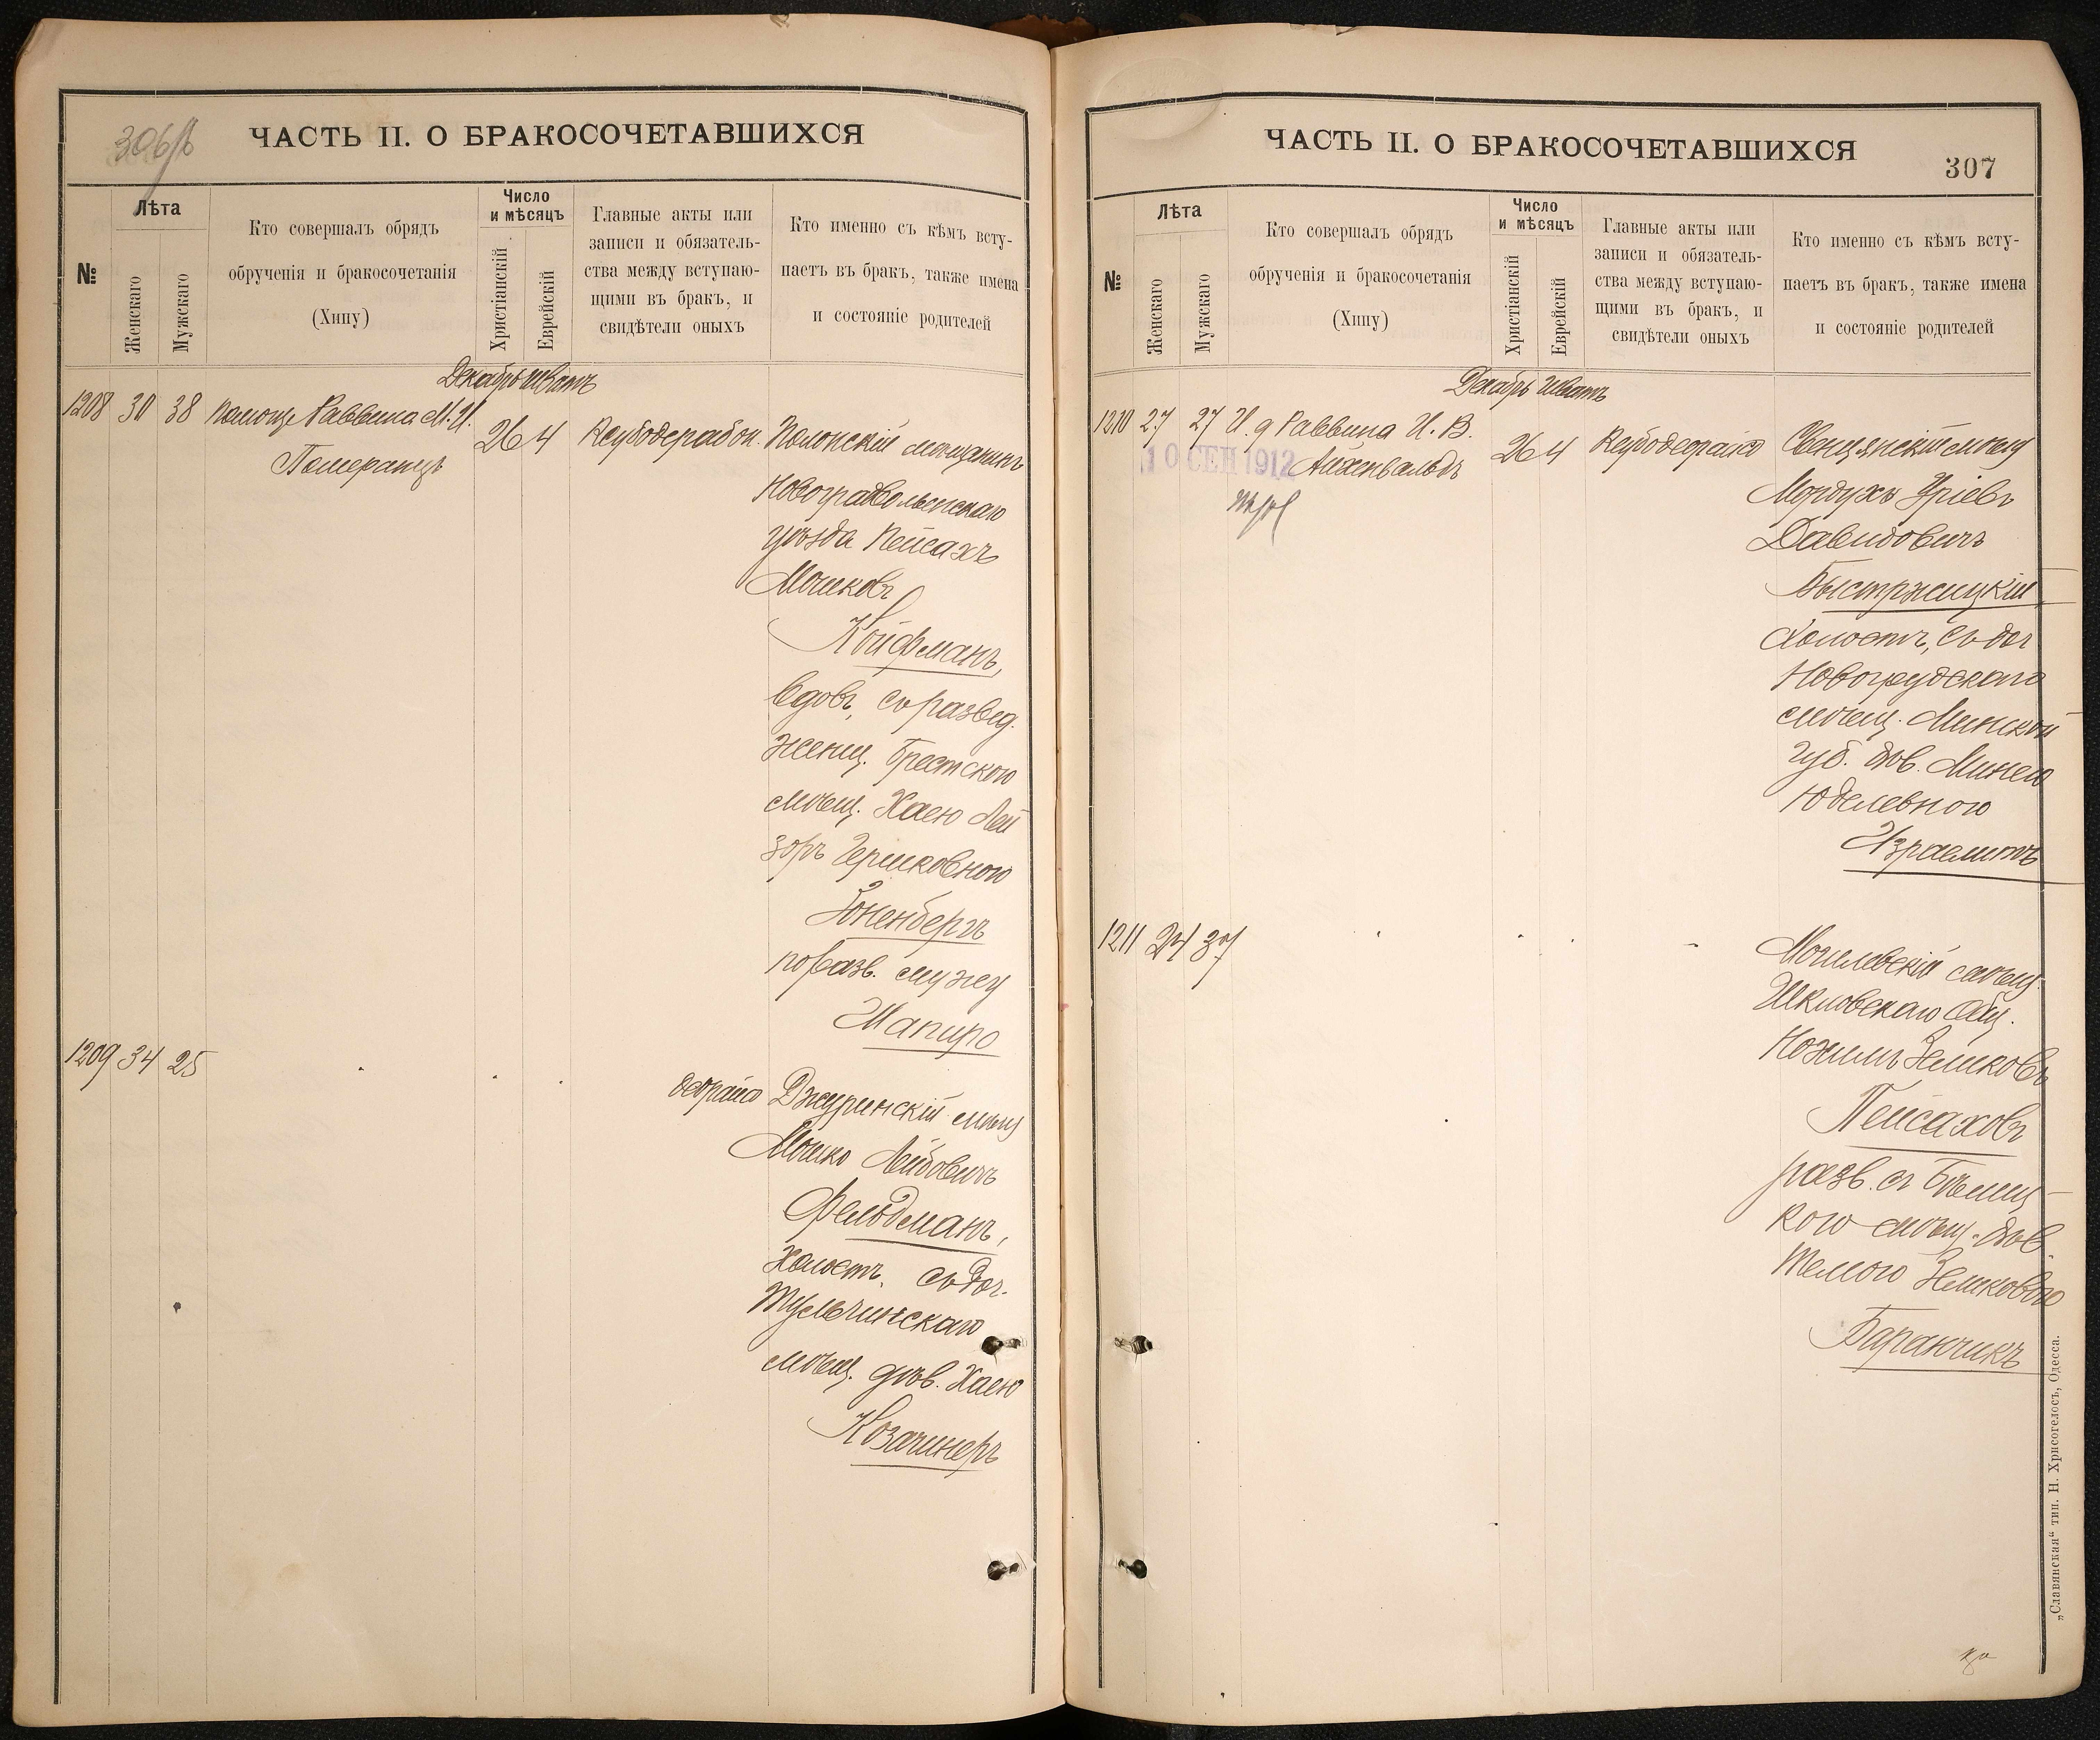 306/б
ЧАСТЬ II. О БРАКОСОЧЕТАВШИХСЯ
№
Лѣта
Женскаго
Мужскаго
Кто совершалъ обрядъ
обрученія и бракосочетанія
(Хипу)
Число
и мѣсяцъ
Христіанскій
Еврейскій
Главные акты или
записи и обязатель-
ства между вступаю-
щими въ бракъ, и
свидѣтели оныхъ
Кто именно съ кѣмъ всту-
паетъ въ бракъ, также имена
и состояніе родителей
Декабрь Шватъ
1208 30 38 Помощ. Раввина М. И.
Померанцъ
26 4
Полонскій мѣщанинъ
Новоградволынскаго
уѣзда Пейсахъ
Мошковъ
Койфманъ,
вдовъ, съ развед.
женщ. Брестскою
мѣщ. Хаею Лей
зоръ Гершковною
по разв. мужу
Шапиро
1209 34 25
деорайсо Джуринскій мѣщ
Мошко Лейбовичъ
Фельдманъ,
холостъ, съ доч.
Тульчинскаго
мѣщ. дѣв. Хаею
Козачинеръ
ЧАСТЬ II. О БРАКОСОЧЕТАВШИХСЯ
307
№
Лѣта
Женскаго
Мужскаго
Кто совершалъ обрядъ
обрученія и бракосочетанія
(Хипу)
Число
и мѣсяцъ
Христіанскій
Еврейскій
Главные акты или
записи и обязатель-
ства между вступаю-
щими въ бракъ, и
свидѣтели оныхъ
Кто именно съ кѣмъ всту-
паетъ въ бракъ, также имена
и состояніе родителей
Декабрь Шватъ
1210 27 27 И. д Раввина И. В.
Айхенвальдъ
10 СЕН 1912
26 4
Свенцянскій мѣщ
Мордухъ Уріевъ
Давидовичъ
Быстржицкій
холостъ, съ доч
Новогрудскаго
мѣщ. Минской
губ. дѣв. Минею
Юделевною
Израелитъ
1211 24 37
Могилевскій мѣщ.
Шкловскаго Общ.
Пейсаховъ
разв. съ
кою мѣщ. дѣв.
Баранчикъ
„Славянская“ тип. Н. Хрисогелосъ, Одесса.